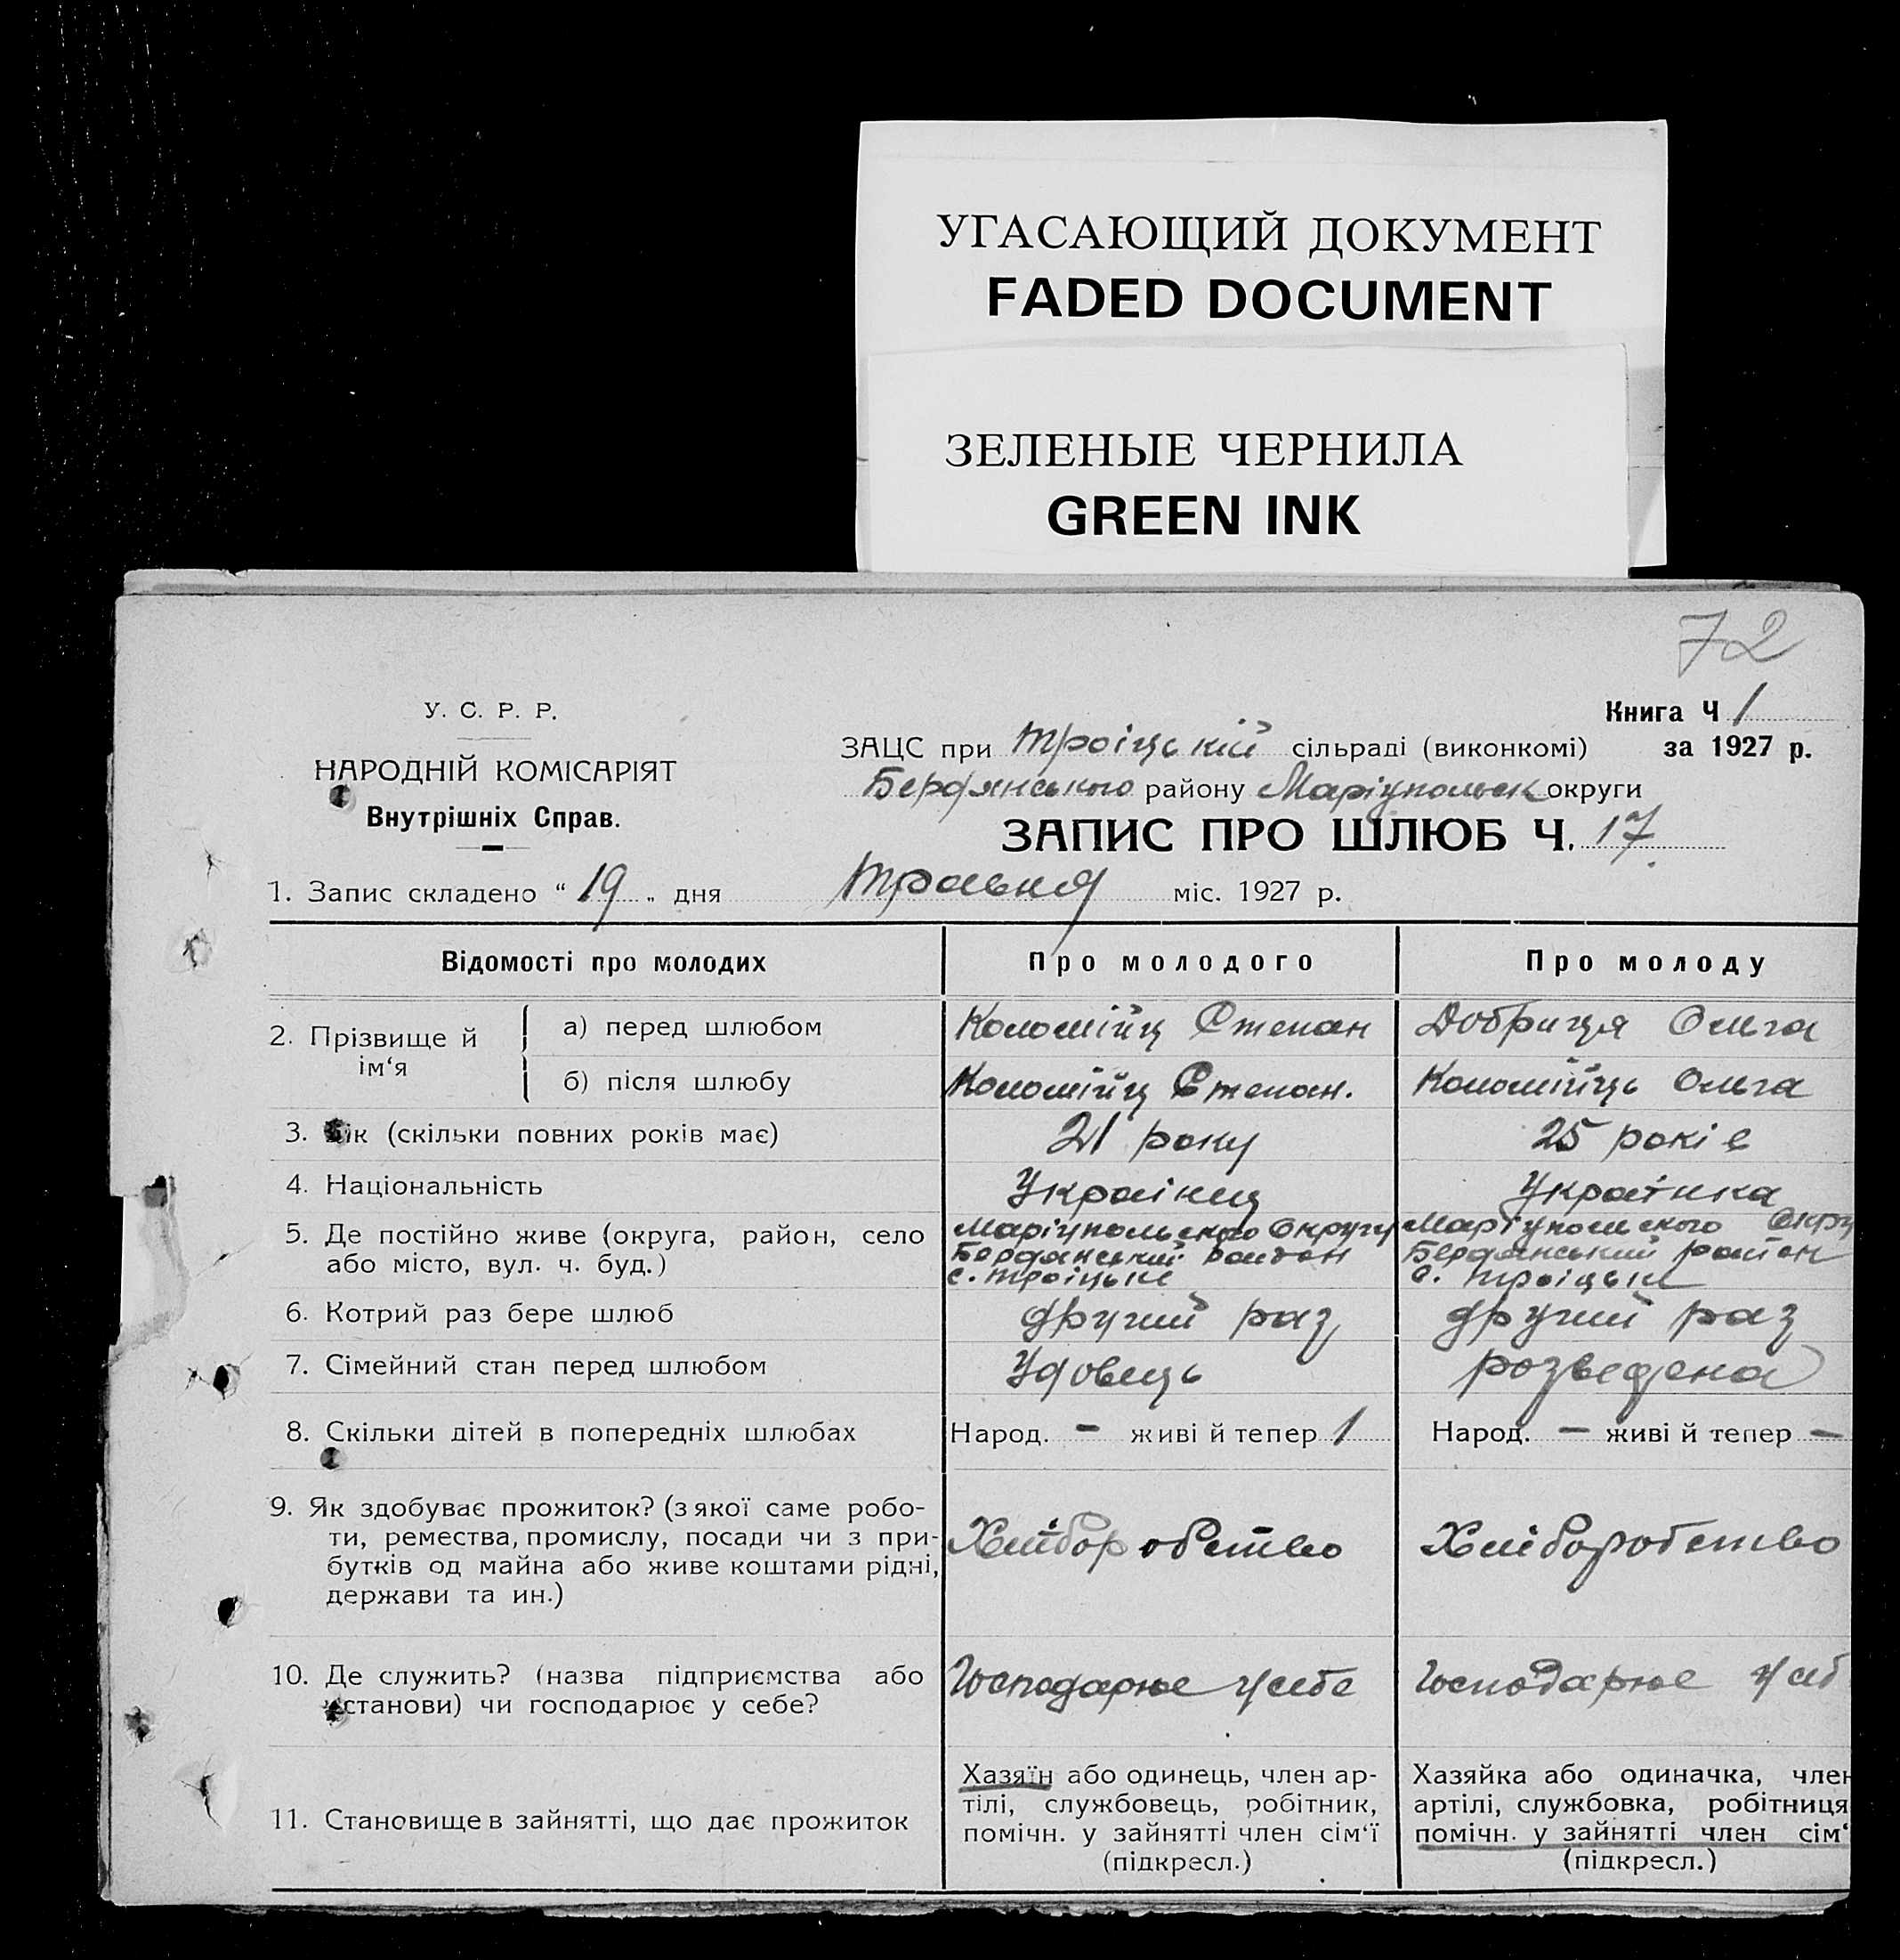 УГАСАЮЩИЙ ДОКУМЕНТ
FADED DOCUMENT
ЗЕЛЕНЫЕ ЧЕРНИЛА
GREEN INK
72
У. С. Р. Р.
НАРОДНІЙ КОМІСАРІЯТ
Внутрішніх Справ.
Книга Ч 1
за 1927 р.
ЗАЦС при Троіцькій сільраді (виконкомі)
Бердянського району Маріупольськ округи
ЗАПИС ПРО ШЛЮБ Ч. 17
1. Запис складено “ 19 „ дня травня міс. 1927 р.
Відомості про молодих Про молодого Про молоду
2. Прізвище й ім‘я
а) перед шлюбом Коломійц Степан Добриця Ольга
б) після шлюбу Коломійц Степан. Коломійць Ольга
3. Вік (скільки повних років має) 21 року 25 років
4. Національність Українец Українка
5. Де постійно живе (округа, район, село або місто, вул. ч. буд.)
Маріупольского Округу
Бердянський район
с. Троіцьке
Маріупольского Окру
Бердянський район
с. Троіцьке
6. Котрий раз бере шлюб другий раз другий раз
7. Сімейний стан перед шлюбом Удовець розведена
8. Скільки дітей в попередніх шлюбах Народ. – живі й тепер 1 Народ. – живі й тепер –
9. Як здобуває прожиток? (з якої саме робо-
ти, ремества, промислу, посади чи з при-
бутків од майна або живе коштами рідні,
держави та ин.)
Хліборобство Хліборобство
10. Де служить? (назва підприємства або
установи) чи господарює у себе?
Господарює у себе Господарює у себ
11. Становище в зайнятті, що дає прожиток
Хазяїн або одинець, член ар-
тілі, службовець, робітник,
помічн. у зайнятті член сім‘ї
(підкресл.)
Хазяйка або одиначка, член
артілі, службовка, робітниця
помічн. у зайнятті член сім‘
(підкресл.)